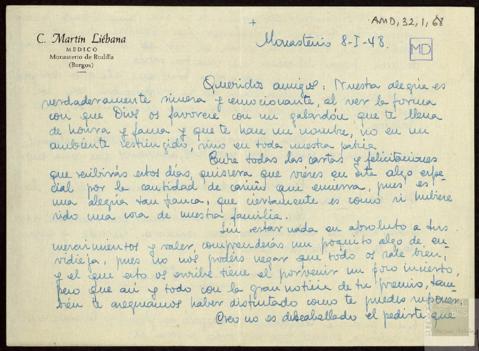 AMD, 32, 1, 68
C. Martín Liébana
MEDICO
Monasterio de Rodilla
(Burgos)
Monasterio 8-I-48.
MD
Queridos amigos: Nuestra alegría es
verdaderamente sincera y emocionante, al ver la forma
con que Dios os favorece con un galardón que te llena
de honra y fama y que te hace un nombre, no en un
ambiente restringido, sino en toda nuestra patria.
Entre todas las cartas y felicitaciones
que recibirás estos días, quisiera que vieses en esta algo espe-
cial por la cantidad de cariño que encierra, pues es
una alegría tan franca, que ciertamente es como si hubiere
sido una cosa de nuestra familia.
Sin restar nada en absoluto a tus
merecimientos y valer, comprenderás un poquito algo de en-
vidieja, pues no nos podéis negar que todo os sale bien,
y el que esto os escribe tiene el porvenir un poco incierto,
pero que así y todo con la gran noticia de tu premio, tam-
bién te aseguramos haber disfrutado como te puedes suponer.
Creo no es descabellado el pedirte que